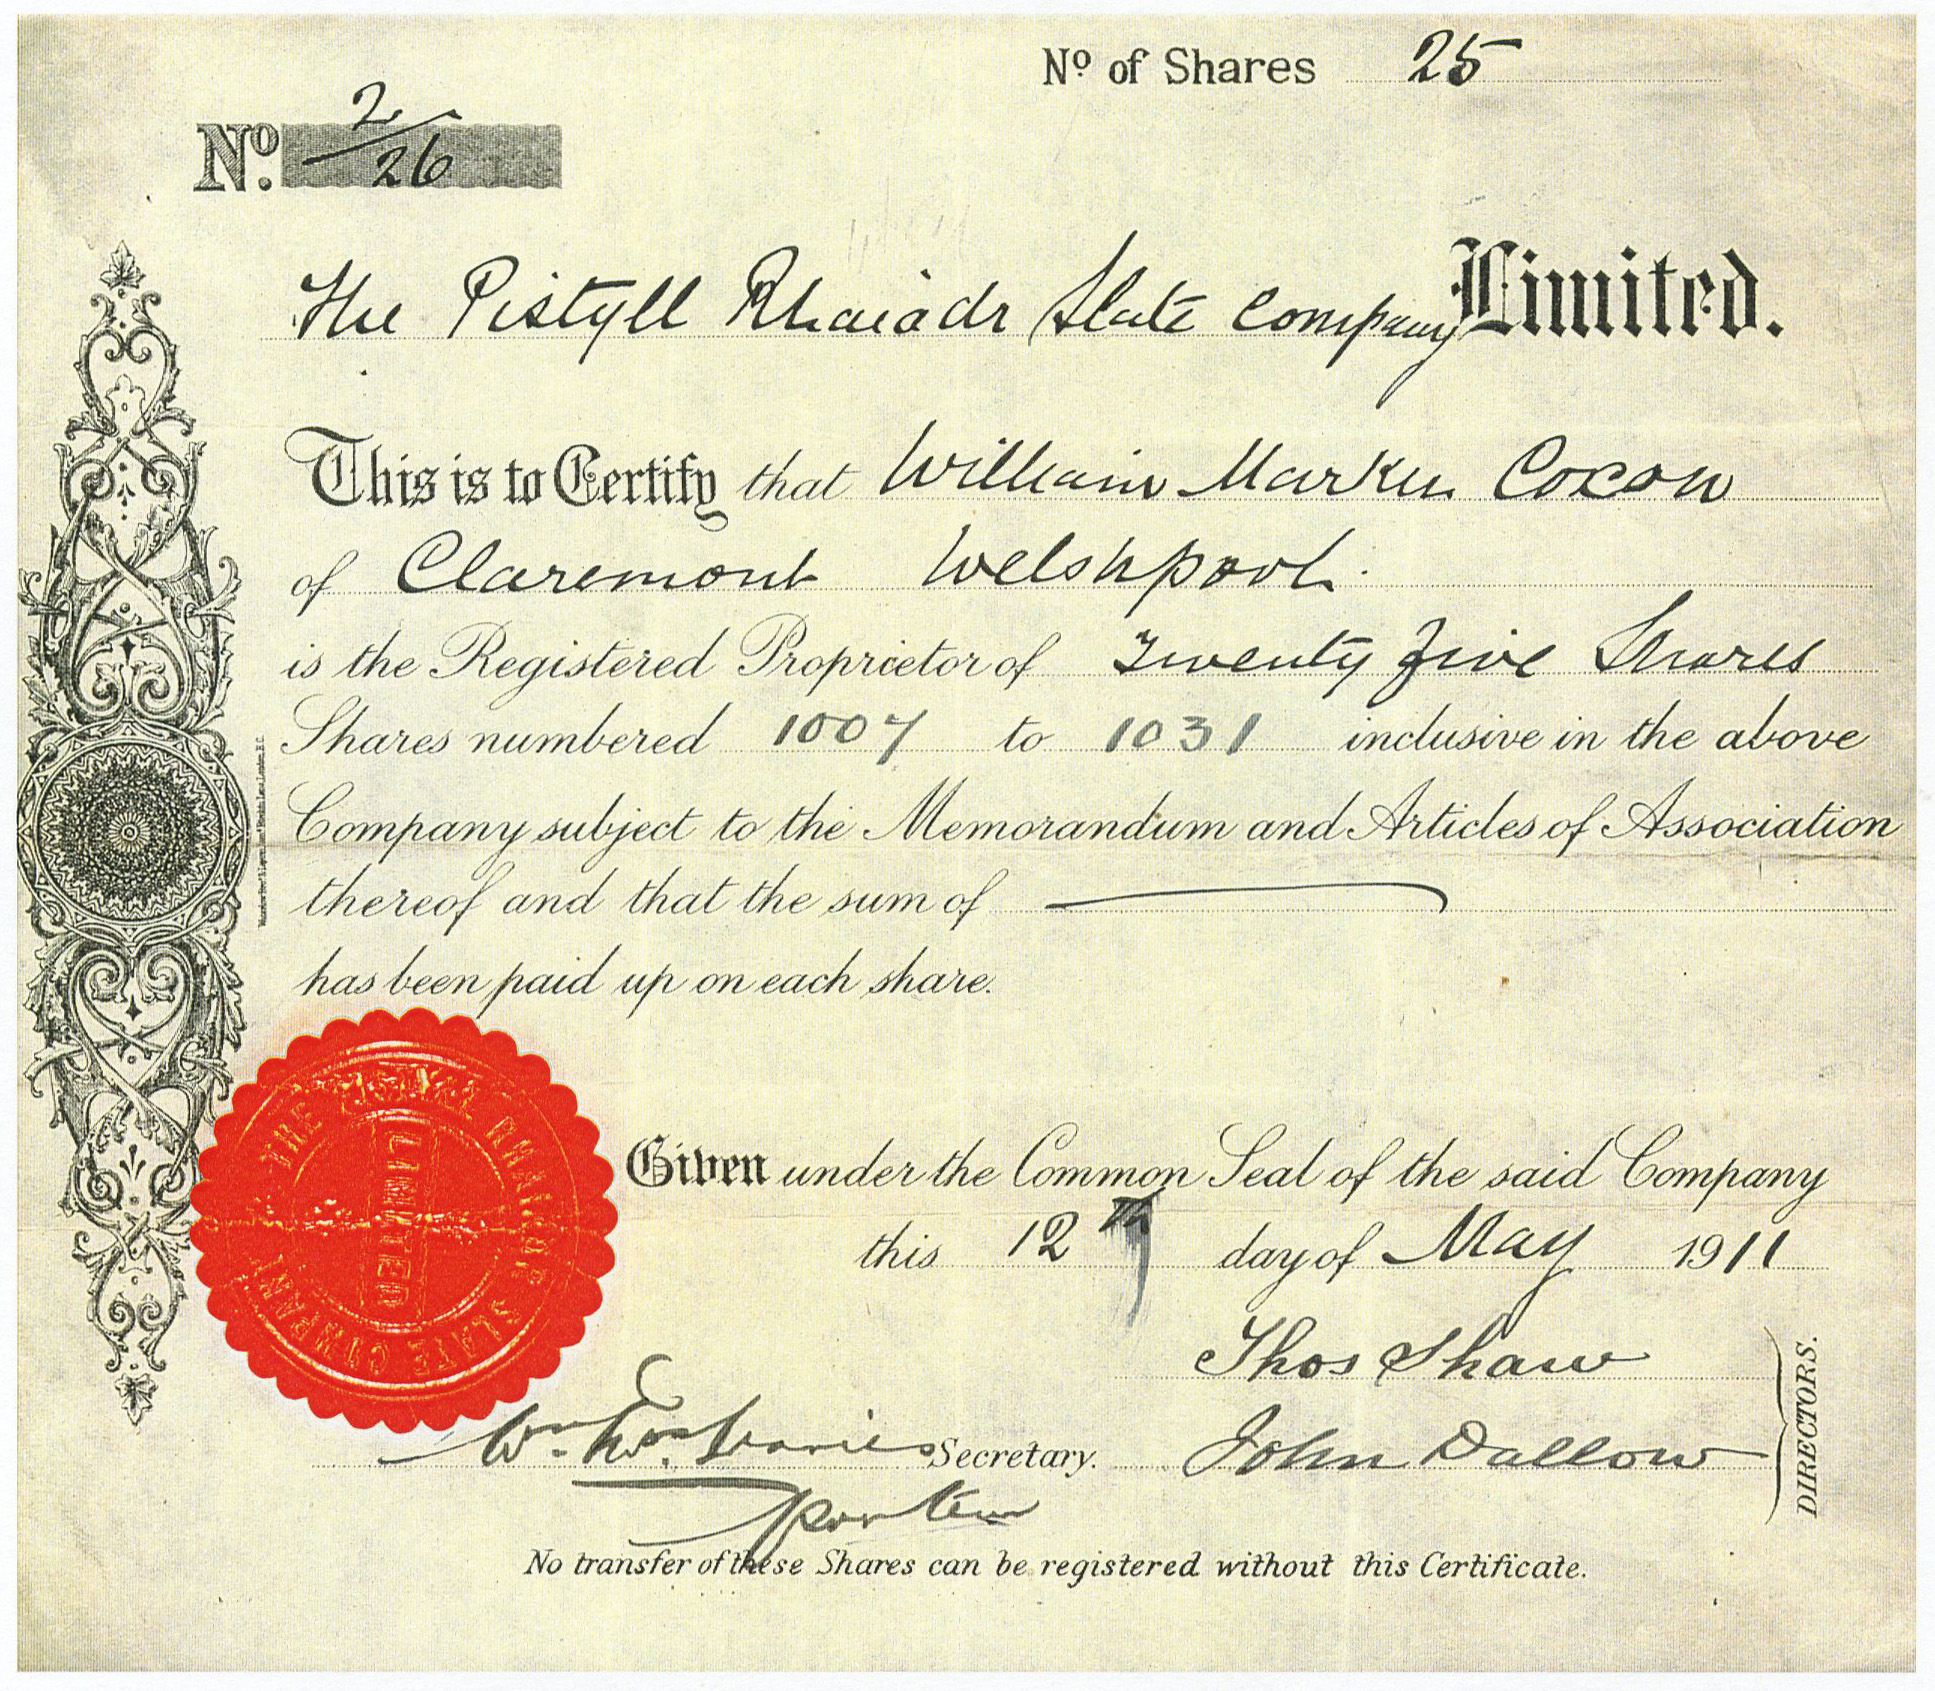 Nº of Shares 25
Nº. 2/26
The Pistyll Rhaiadr Slate Company Limited.
This is to Certify that William Coxon
of Claremont Welshpool.
is the Registered Proprietor of Twenty Five Shares
Shares numbered 1007 to 1031 inclusive in the above
Company subject to the Memorandum and Articles of Association
thereof and that the sum of
has been paid up on each share.
THE PISTYLL RHAIADR SLATE COMPANY
LIMITED
Given under the Common Seal of the said Company
this 12th day of May 1911
Thos Shaw
Secretary. John Dallow
DIRECTORS.
No transfer of these Shares can be registered without this Certificate.